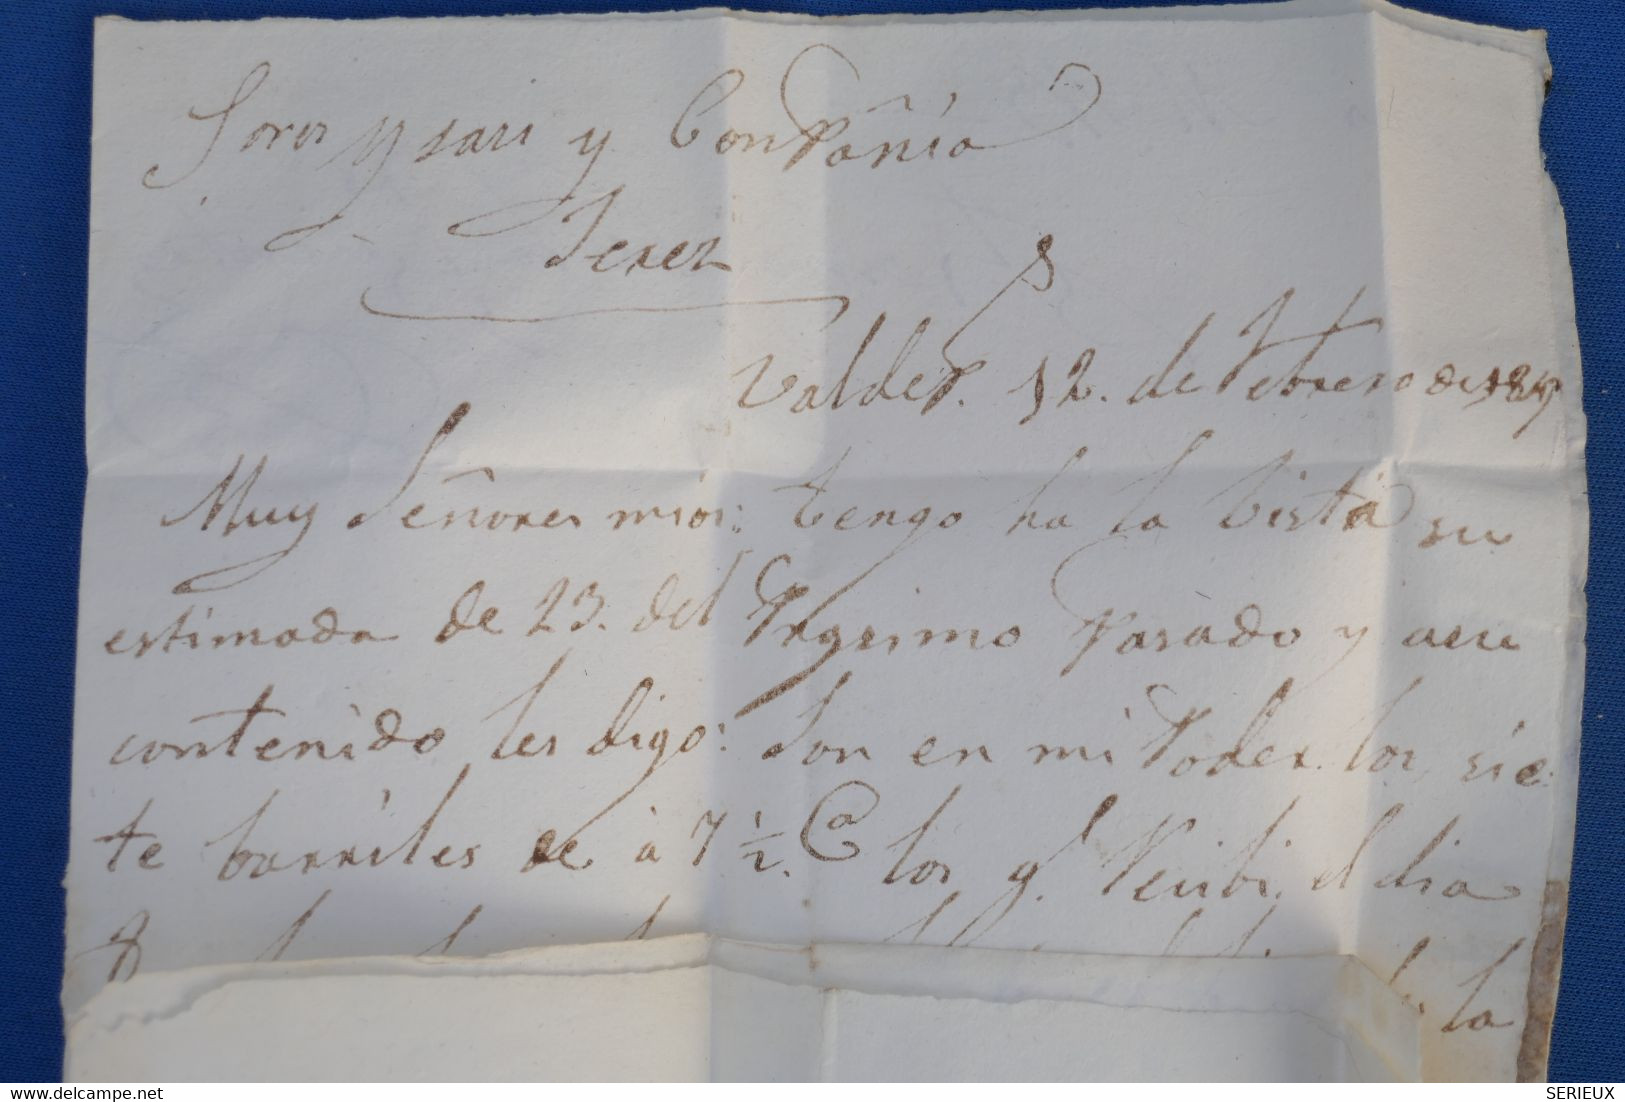 Sores Ysasi y Conpañía
Jerez
Valdep.s 12. de Febrero de
Muy Señores mios: tengo ha la bista su
estimada de 23. del Prosimo pasado y a su
contenido les digo: Son en mi Poder los sie
te barriles de à 7 1/2. @ los q.e Recibi el dia
la
delcampe.net
SERIEUX